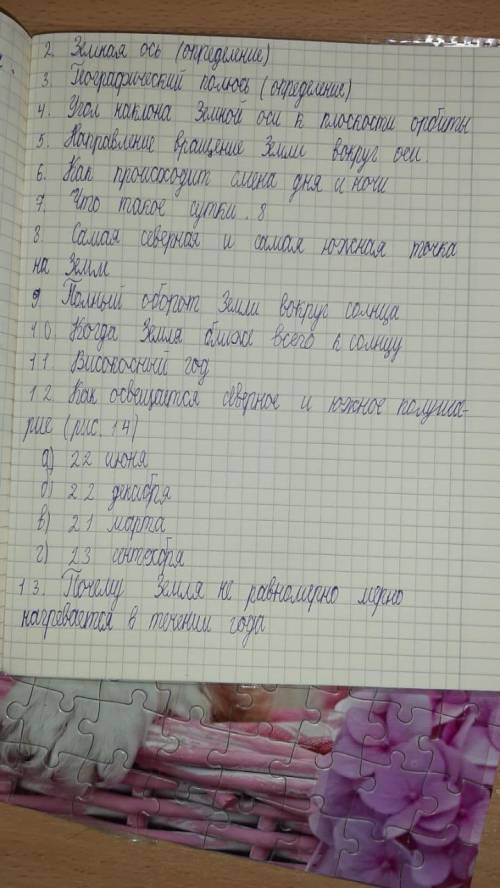 2. Земная ось (определение)
3. Географический полюсь (определение)
4. Угол наклона Земной оси к плоскости орбиты
5. Направление вращение Земли вокруг оси.
6. Как происходит смена дня и ночи
7. Что такое сутки. 8
8. Самая северная и самая южная точка
на Земли
9 Полный оборот Земли вокруг солнца
10 Когда Земля ближе всего к солнцу
11. Високосный год
12. Как освещается северное и южное полуша-
рие (рис. 14)
а) 22 июня
б) 22 декабря
в) 21 марта
г) 23 сентебря
13. Почему Земля не равномерно мерно
нагревается в течении года